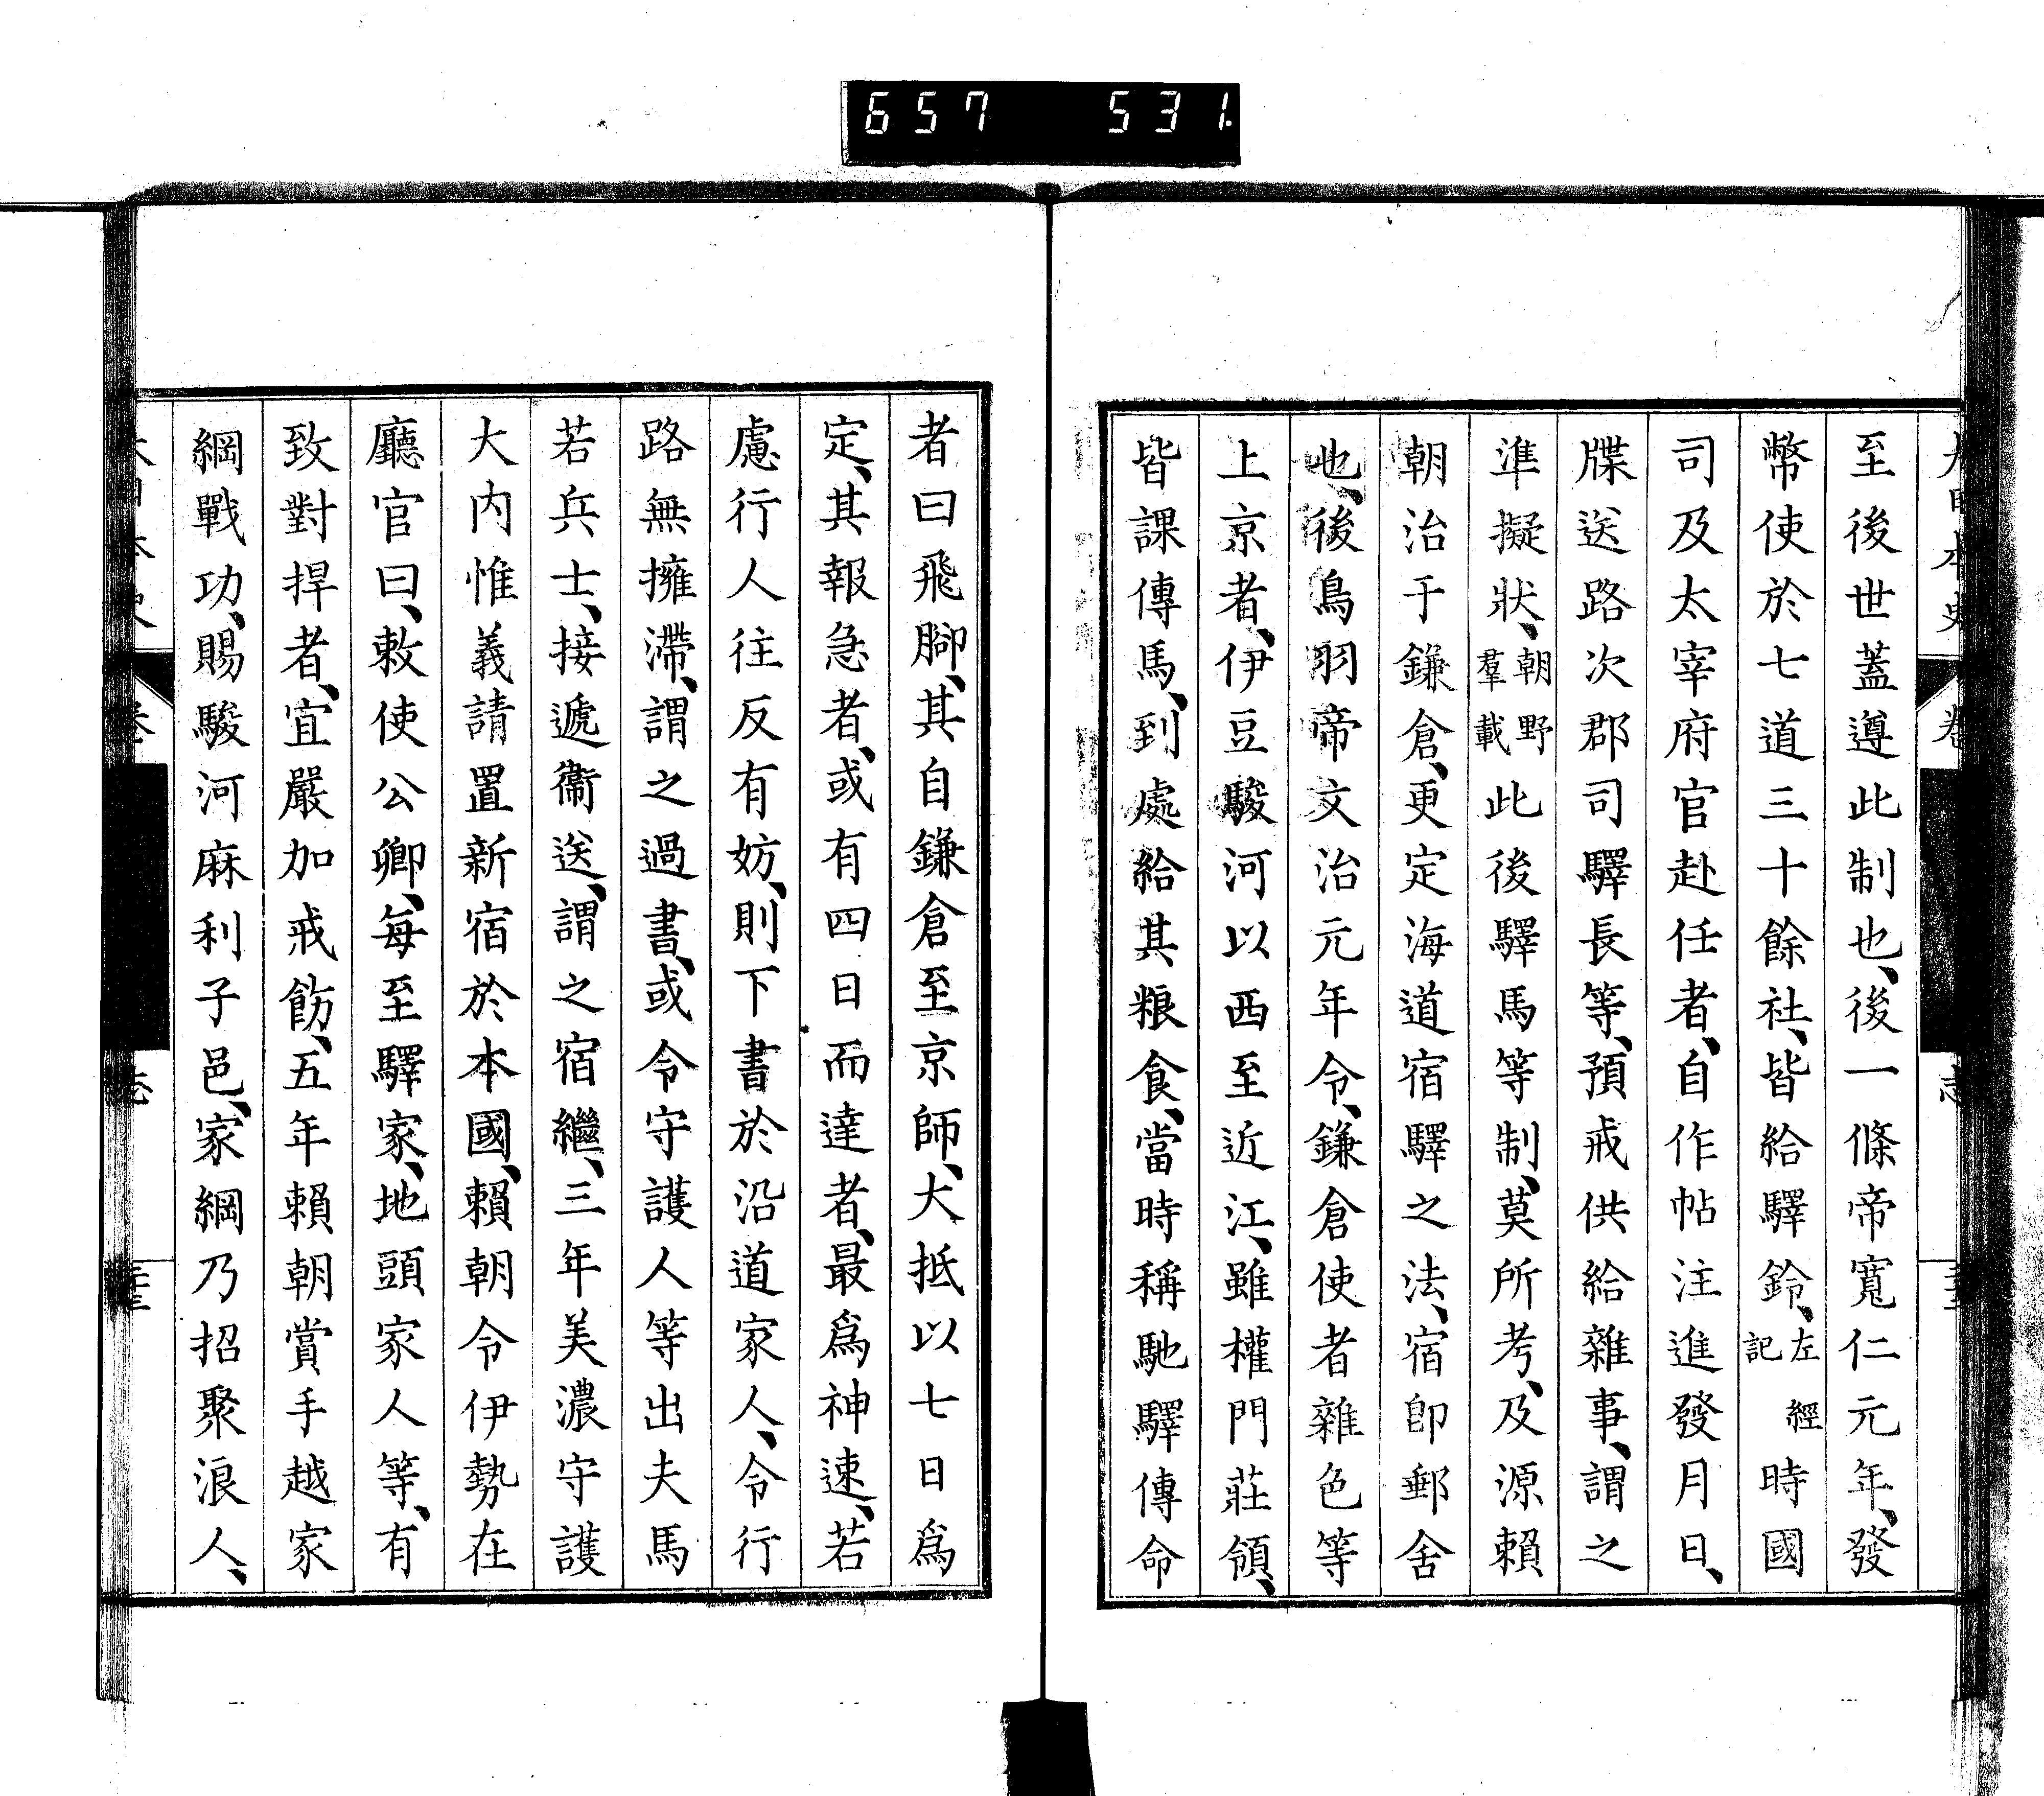 657 531.
至後世蓋遵此制也、後一條帝寬仁元年、發
幣使於七道三十餘社、皆給驛鈴、左經記時國
司及太宰府官赴任者、自作帖注進發月日、
牒送路次郡司驛長等、預戒供給雜事、謂之
準擬狀、朝野羣載此後驛馬等制、莫所考、及源賴
朝治于鎌倉、更定海道宿驛之法、宿卽郵舍
也、後鳥羽帝文治元年令、鎌倉使者雜色等
上京者、伊豆駿河以西至近江、雖權門莊領、
皆課傳馬、到處給其粮食、當時稱馳驛傳命
者曰飛腳、其自鎌倉至京師、大抵以七日爲
定、其報急者、或有四日而達者、最爲神速、若
慮行人往反有妨、則下書於沿道家人、令行
路無擁滯、謂之過書、或令守護人等出夫馬
若兵士、接遞衞送、謂之宿繼、三年美濃守護
大内惟義請置新宿於本國、賴朝令伊勢在
廳官曰、敕使公卿、每至驛家、地頭家人等、有
致對捍者、宜嚴加戒飭、五年賴朝賞手越家
綱戰功、賜駿河麻利子邑、家綱乃招聚浪人、